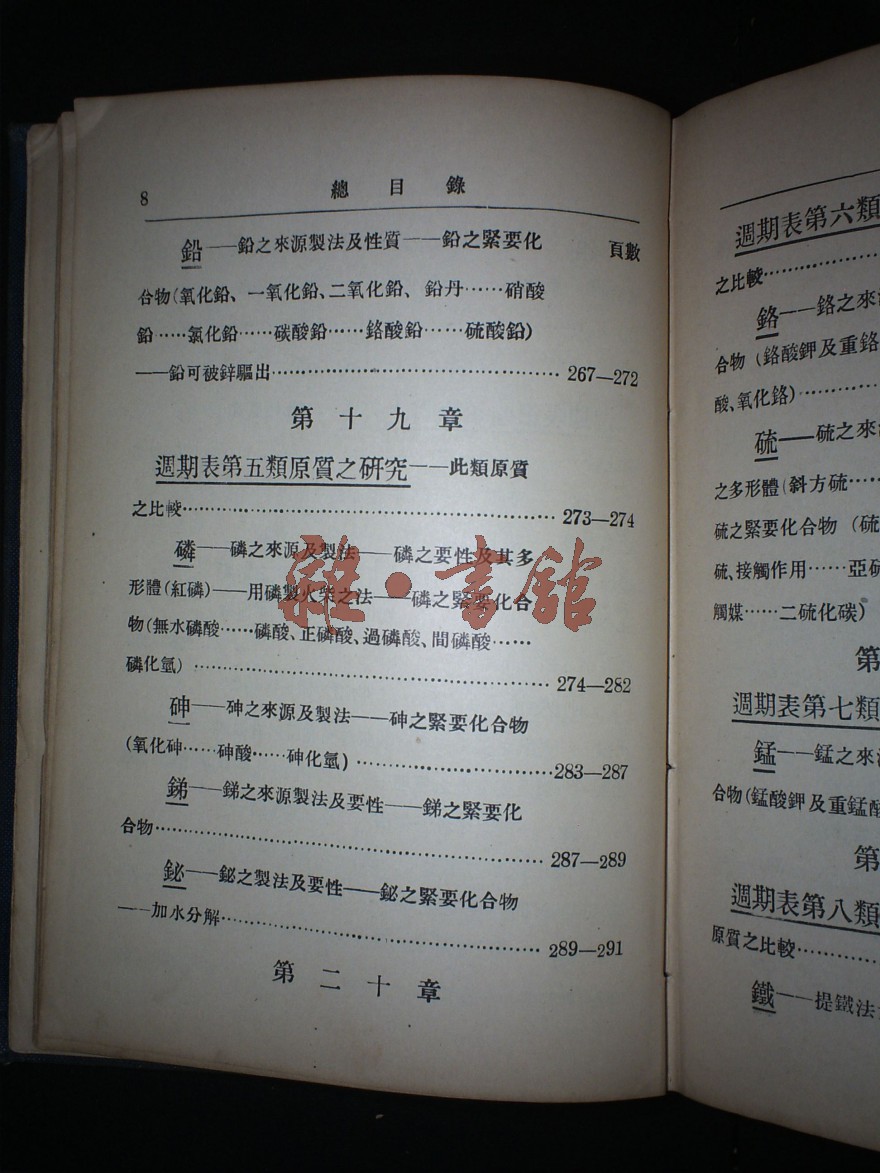 8
總目錄
頁數
鉛——鉛之來源製法及性質——鉛之緊要化
合物(氧化鉛、一氧化鉛、二氧化鉛、鉛丹……硝酸
鉛……氯化鉛……碳酸鉛……鉻酸鉛……硫酸鉛)
——鉛可被鋅驅出……267—272
第十九章
週期表第五類原質之研究——此類原質
之比較……273—274
磷——磷之來源及製法——磷之要性及其多
形體(紅磷)——用磷製火柴之法——磷之緊要化合
物(無水磷酸……磷酸、正磷酸、過磷酸、間磷酸……
磷化氫)……274—282
砷——砷之來源及製法——砷之緊要化合物
(氧化砷……砷酸……砷化氫)……283—287
銻——銻之來源製法及要性——銻之緊要化
合物……287—289
鉍——鉍之製法及要性——鉍之緊要化合物
——加水分解……289—291
第二十章
雜·書館
週期表第六類
之比較……
鉻——鉻之來
合物(鉻酸鉀及重鉻
酸、氧化鉻)……
硫——硫之來
之多形體(斜方硫……
硫之緊要化合物(硫
硫、接觸作用……亞硫
觸媒……二硫化碳)
第
週期表第七類
錳——錳之來
合物(錳酸鉀及重錳酸
第
週期表第八類
原質之比較……
鐵——提鐵法